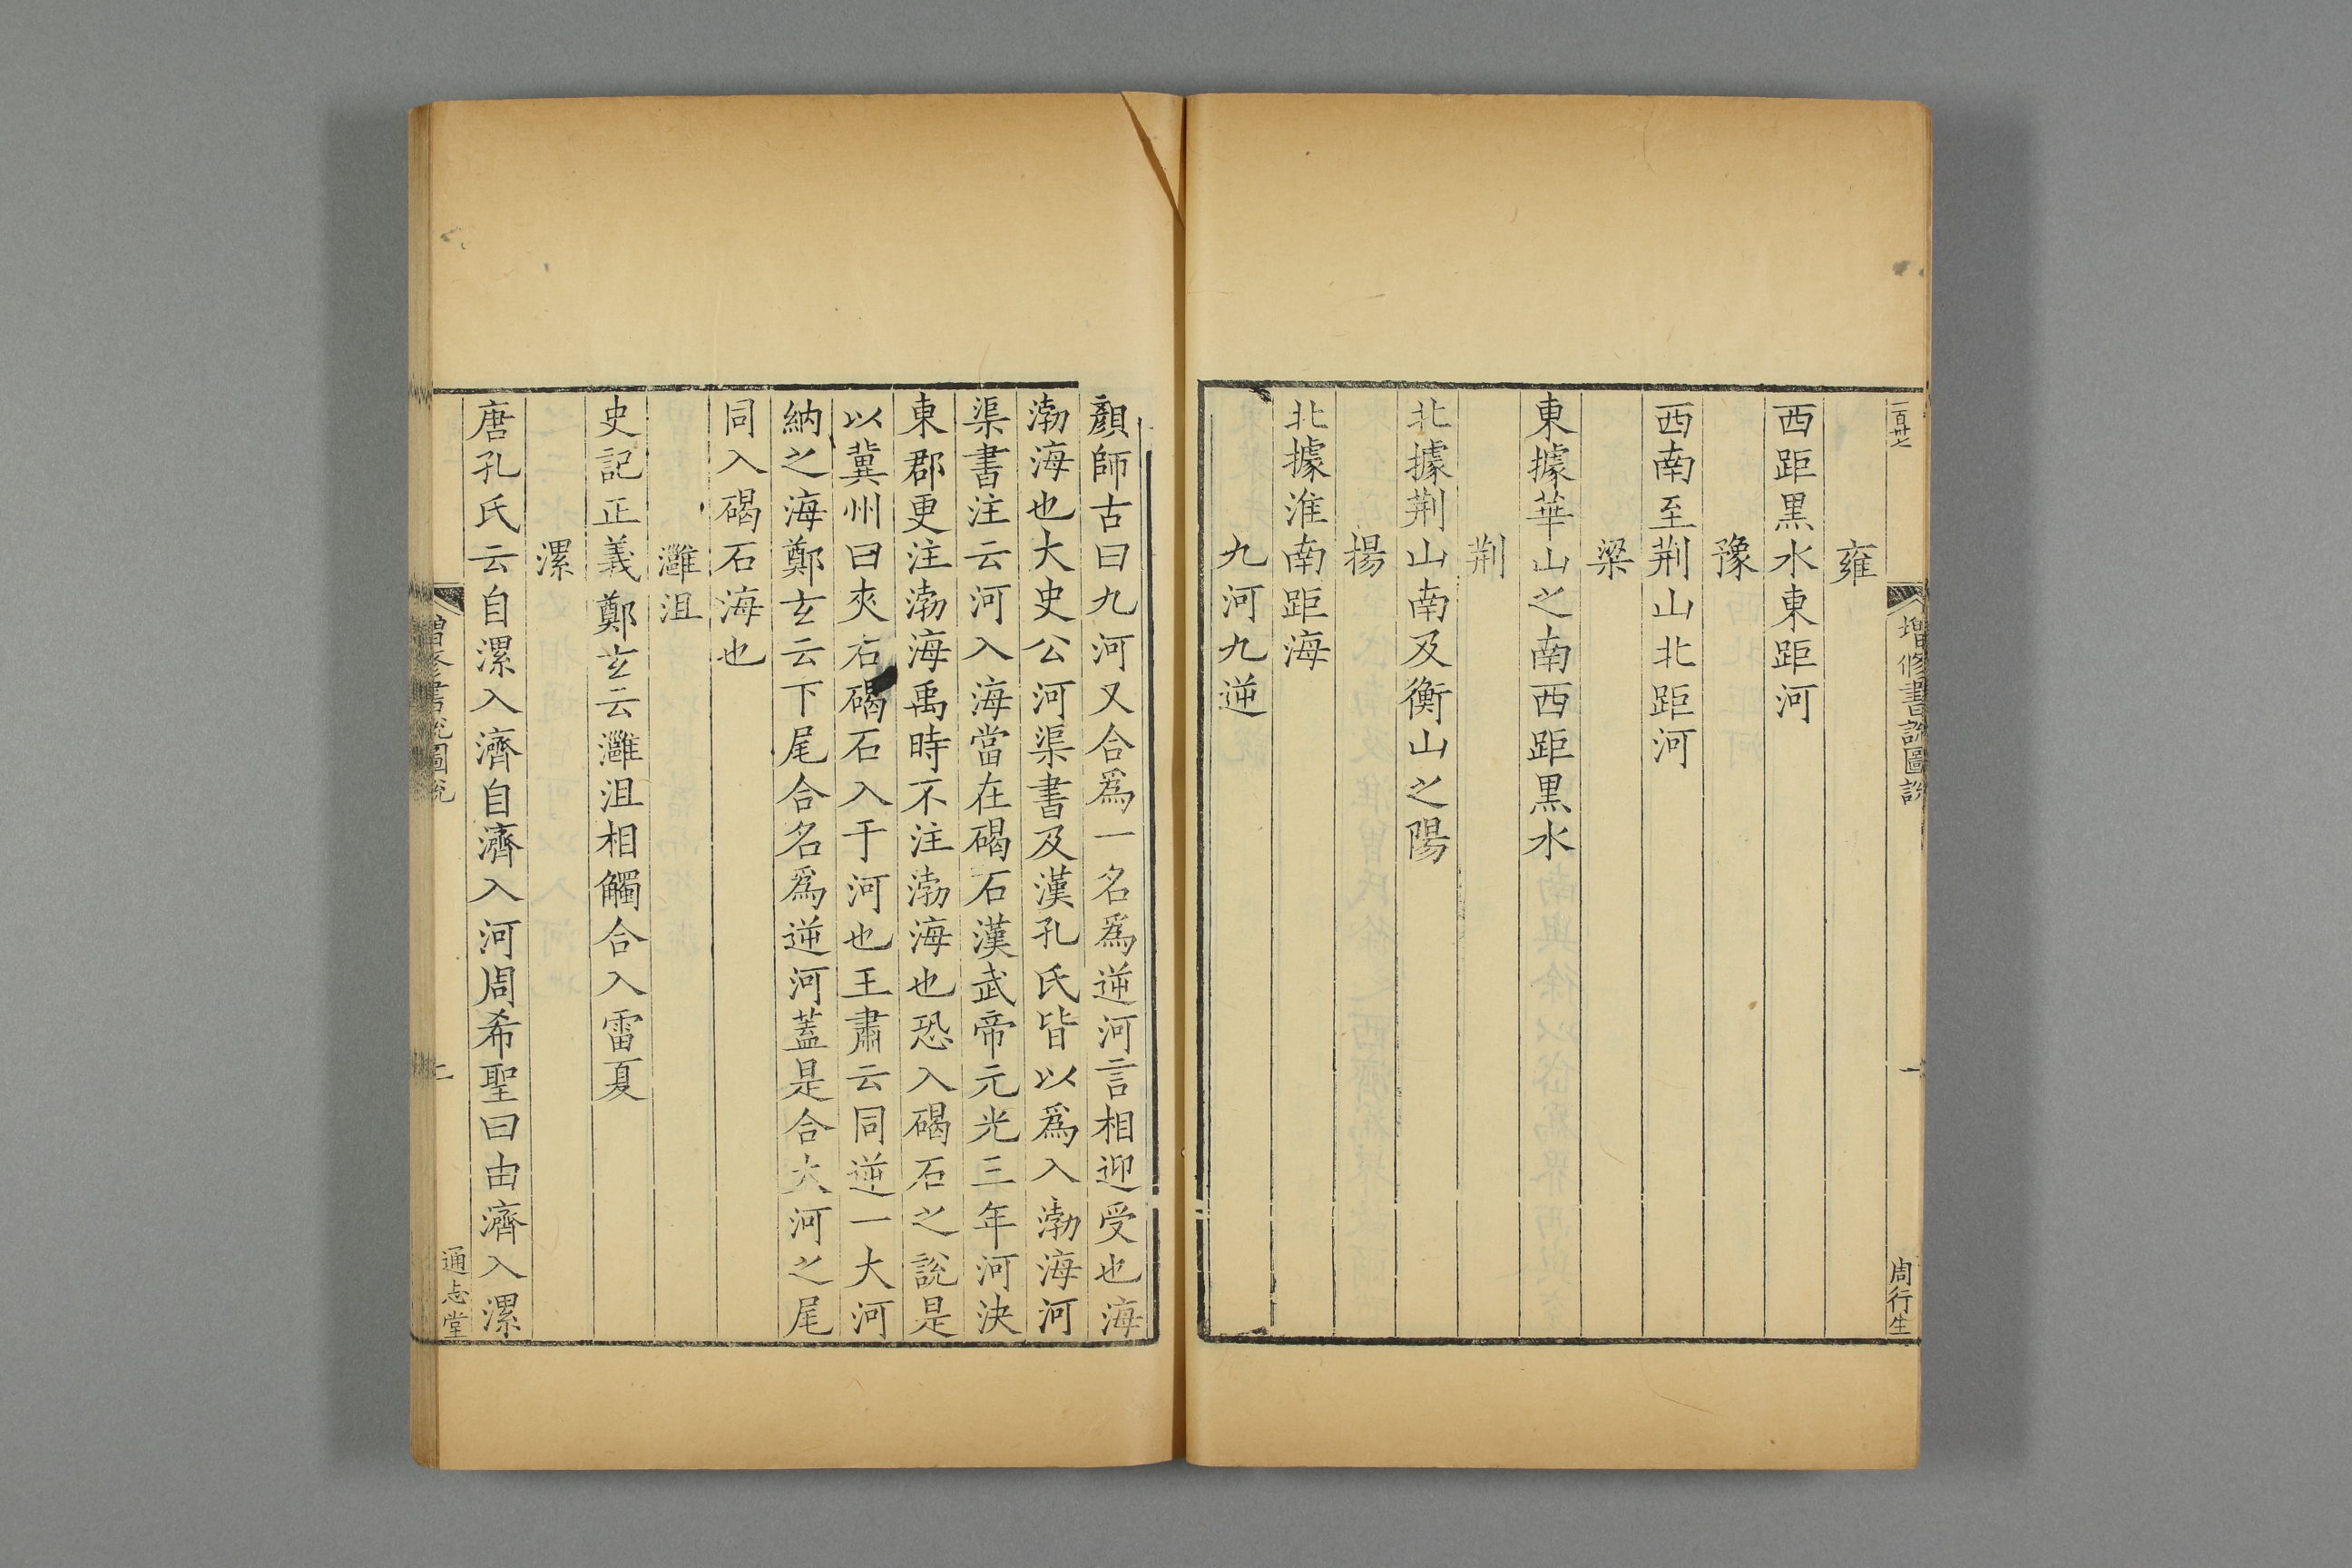 一百廿七
增修書說圖說
一
周行生
雍
西距黒水東距河
豫
西南至荆山北距河
梁
東據華山之南西距黒水
荆
北據荆山南及衡山之陽
揚
北據淮南距海
九河九逆
顏師古曰九河又合爲一名爲逆河言相迎受也海
渤海也大史公河渠書及漢孔氏皆以爲入渤海河
渠書注云河入海當在碣石漢武帝元光三年河決
東郡更注渤海禹時不注渤海也恐入碣石之說是
以冀州曰夾右碣石入于河也王肅云同逆一大河
納之海鄭玄云下尾合名爲逆河蓋是合大河之尾
同入碣石海也
灉沮
史記正義鄭玄云灉沮相觸合入雷夏
漯
唐孔氏云自漯入濟自濟入河周希聖曰由濟入漯
增修書說圖說
二
通志堂